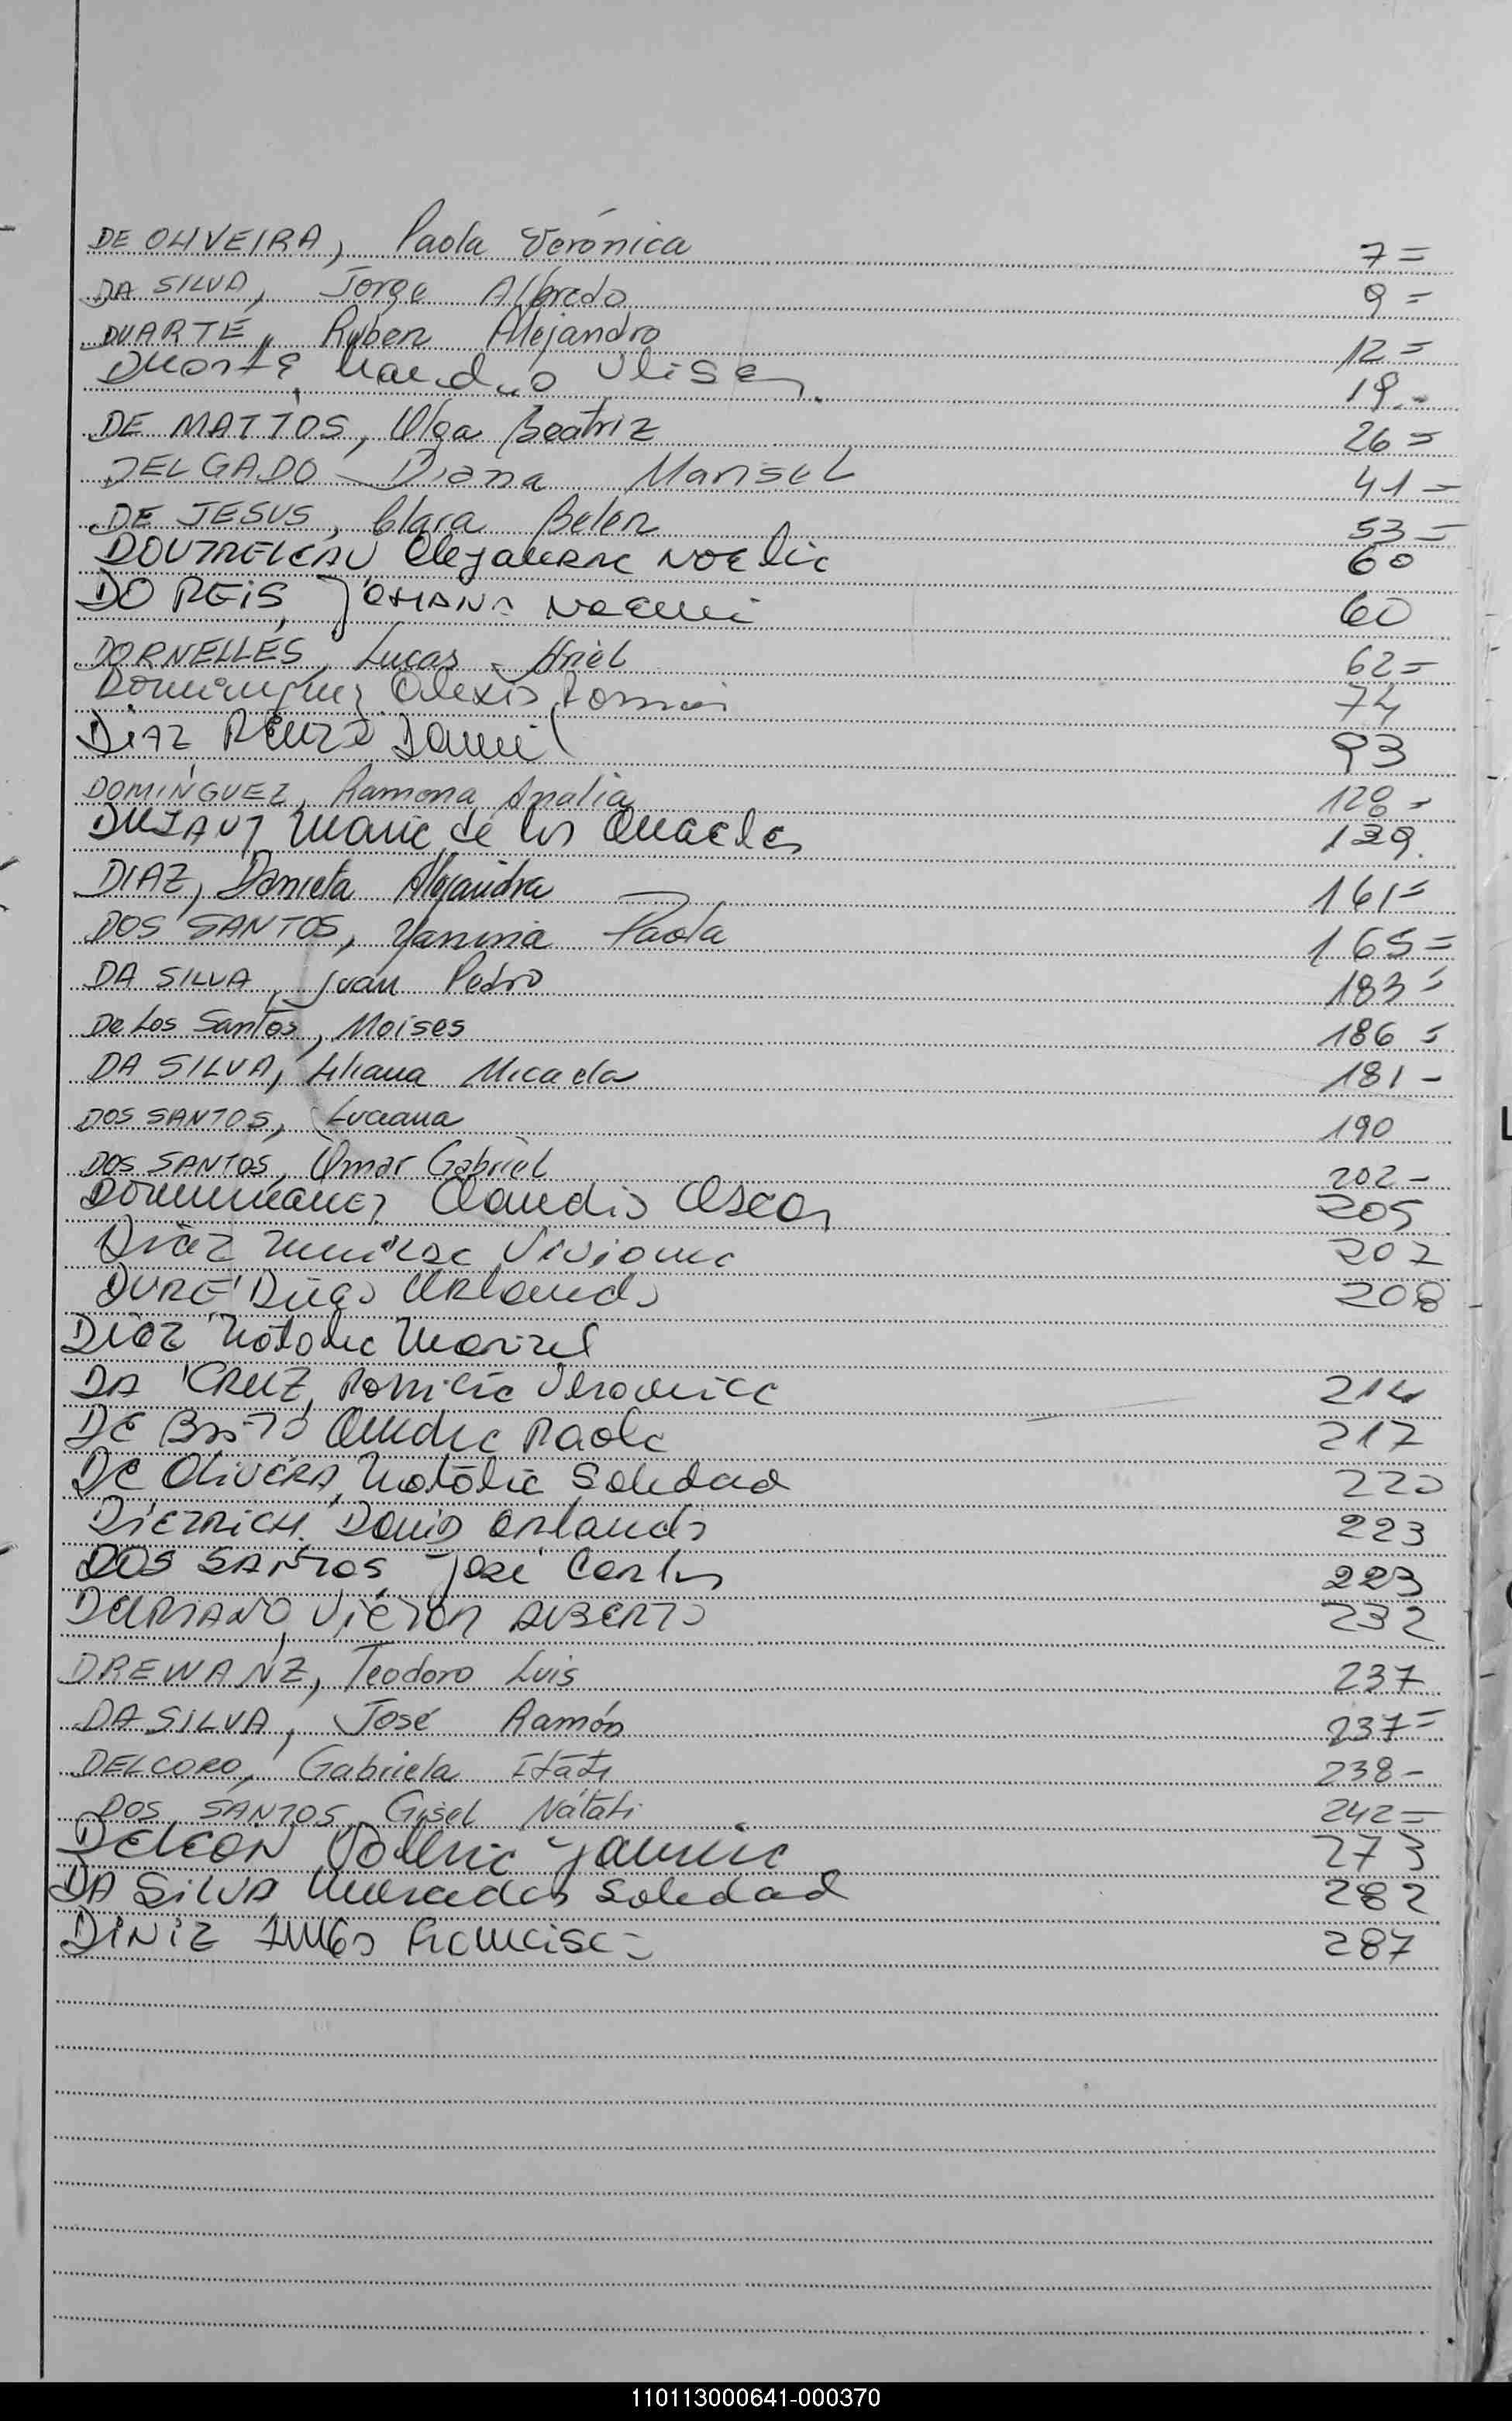 DE OLIVEIRA, Paola Verónica 7=
DA SILVA, Jorge Alfredo 9=
DUARTE, Ruben Alejandro 12=
Duarte, Ulises 19.-
DE MATTOS, Olga Beatriz 26=
DELGADO Diana Marisel 41=
DE JESUS, Clara Belen 53=
DOUTRELEAU Alejandra Noelia 60
DO REIS, JOHANA Noemi 60
DORNELLES, Lucas Ariel 62=
Dominguez Alexis 74
DiAZ Renzo Daniel 93
DOMINGUEZ, Ramona Analia 128=
Maria de los Angeles 129.
DIAZ, Daniela Alejandra 161=
DOS SANTOS, Yanina Paola 165=
DA SILVA, Juan Pedro 183=
De Los Santos, Moises 186=
DA SILVA, Liliana Micaela 181-
DOS SANTOS, Luciana 190
DOS SANTOS, Omar Gabriel 202-
Dominguez Claudio Oscar 205
Diaz Viviana 207
DURE Diego Orlando 208
Diaz Natalia Marizel
DA CRUZ, Patricia Veronica 214
DE Brito Andrea Paola 217
DE OLIVERA, Natalia Soledad 220
DIETRICH, David Orlando 223
DOS SANTOS, José Carlos 223
Victor ALBERTO 232
DREWANZ, Teodoro Luis 237
DA SILVA, José Ramón 237=
DELCORO, Gabriela Itatí 238-
DOS SANTOS, Gisel Natali 242=
DELEON Valeria Yanina 273
DA SILVA Mercedes Soledad 282
DINIZ Hugo Francisco 287
110113000641-000370